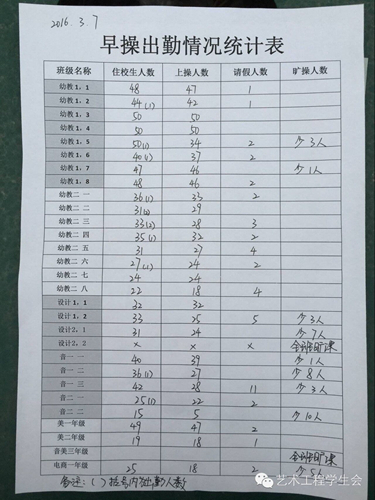 2016. 3. 7
早操出勤情况统计表
班级名称 住校生人数 上操人数 请假人数 旷操人数
幼教1.1 48 47 1
幼教1.2 44(1) 42 1
幼教1.3 50 50
幼教1.4 50 50
幼教1.5 50(1) 34 2 少3人
幼教1.6 40(1) 37 2
幼教1.7 47 46 少1人
幼教1.8 48 46 2
幼教二 一 36(1) 33 2
幼教二 二 31 29
幼教二 三 33(2) 28 3
幼教二 四 35(1) 32 2
幼教二 五 31 27 4
幼教二 六 27(1) 24 2
幼教二 七 24 24
幼教二 八 22 18 4
设计1.1 32 32
设计1.2 33 25 5 少3人
设计2.1 31 24 少7人
设计2.2 × × × 全班旷课
音一 一 40 39 少1人
音一 二 36(1) 27 少8人
音一 三 42 28 11 少3人
音二 一 25(1) 22 2
音二 二 15 5 少10人
美一年级 49 47 2
美二年级 19 18 1
音美三年级 全班旷课
电商一年级 25 18 2 少5人
备注:( )括号内为出勤人数
艺术工程学生会